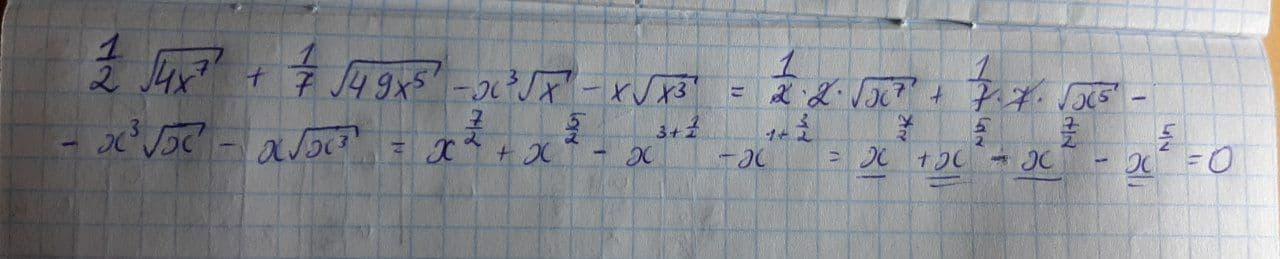 1/2 √(4x⁷) + 1/7 √(49x⁵) - x³√x - x√(x³) = 1/2 · 2 · √(x⁷) + 1/7 · 7 · √(x⁵) -
- x³√x - x√(x³) = x^(7/2) + x^(5/2) - x^(3+1/2) - x^(1+3/2) = x^(7/2) + x^(5/2) - x^(7/2) - x^(5/2) = 0